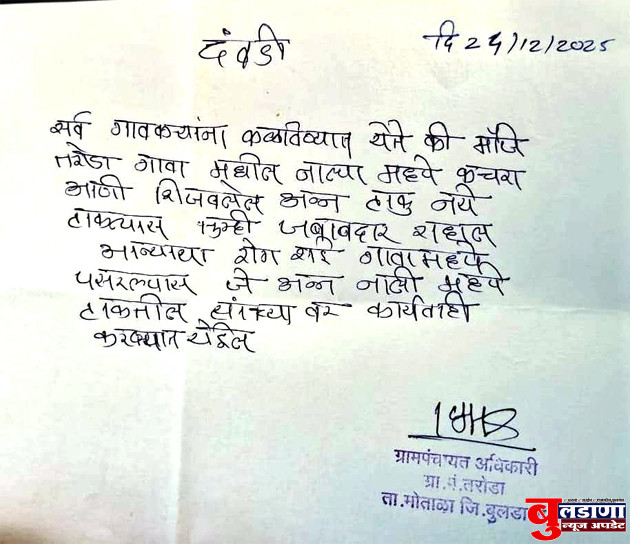 दंवडी
दि 25/12/2025
सर्व गावकऱ्यांना कळविण्यात येते की मौजे
तरोडा गावा मधील नाल्या मध्ये कचरा
आणी शिजवलेल अन्न टाकु नये
टाकल्यास तुम्ही जबाबदार राहाल
रोग राई गावा मध्ये
पसरल्यास जे अन्न नाली मध्ये
टाकतील त्यांच्या वर कार्यवाही
करण्यात येईल
ग्रामपंचायत अधिकारी
ग्रा.पं.तरोडा
ता.मोताळा जि.बुलडा
बुलडाणा
न्यूज अपडेट